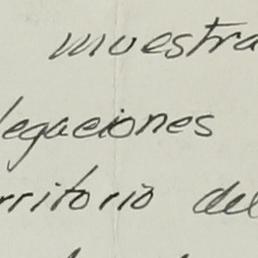 muestra
legaciones
rritorio del